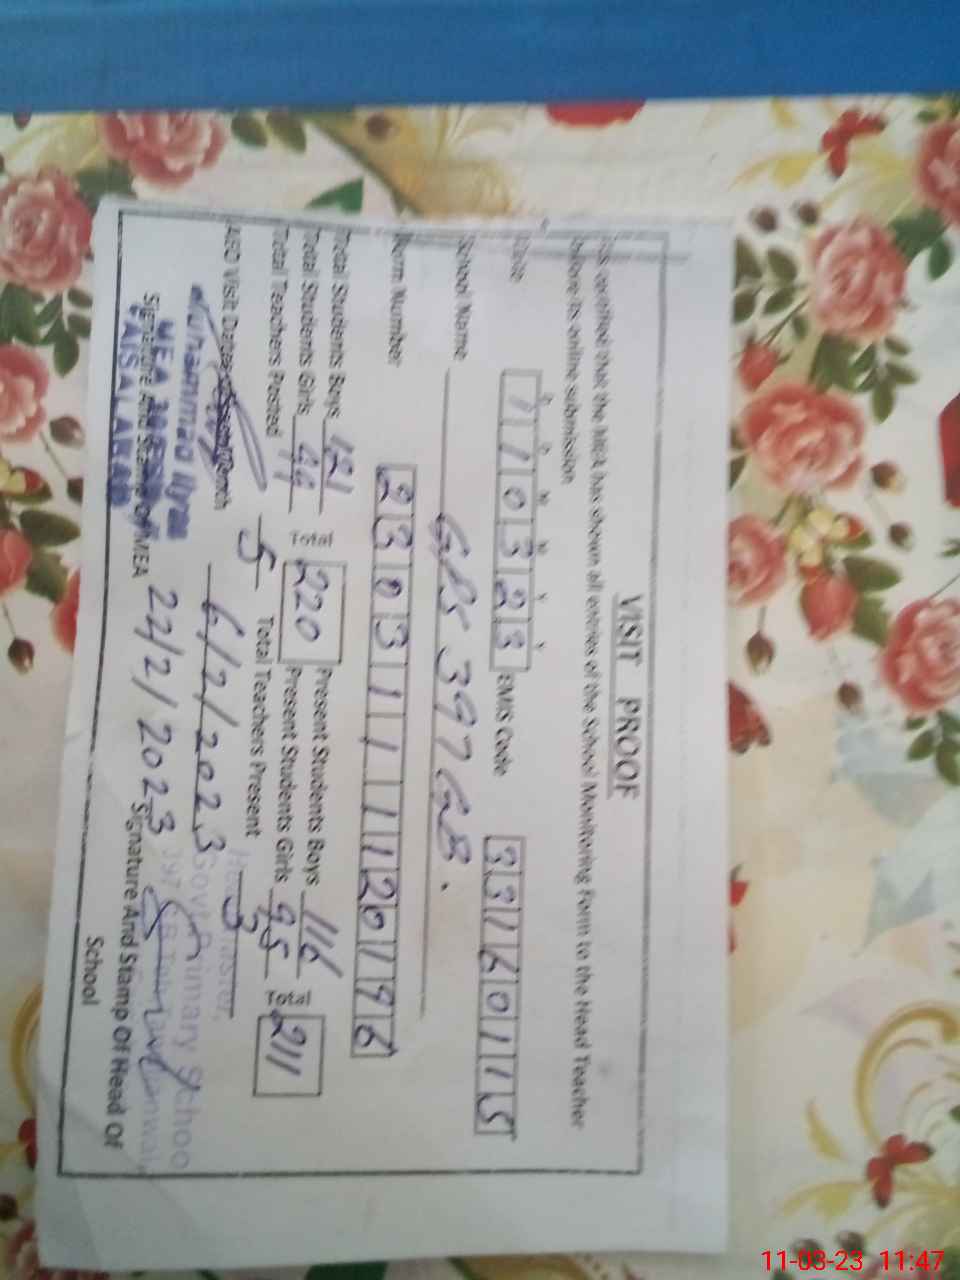 VISIT PROOF
certified that the MEA has shown all entries of the School Monitoring Form to the Head Teacher
before its online submission
Date D D M M Y Y 110323 EMIS Code 33160115
School Name GPS 397 GB.
Form Number 2303111120196
Total Students Boys 121 Total 220 Present Students Boys 116 Total 211
Total Students Girls 99 Present Students Girls 95
Total Teachers Posted 5 Total Teachers Present 3
AEO Visit Dates Month 6/2/2023
22/2/2023
Muhammad Ilyas
MEA
FAISALABAD
Signature And Stamp Of MEA
Headmaster,
Govt Primary School
397 GB
Signature And Stamp Of Head Of
School
11-03-23 11:47